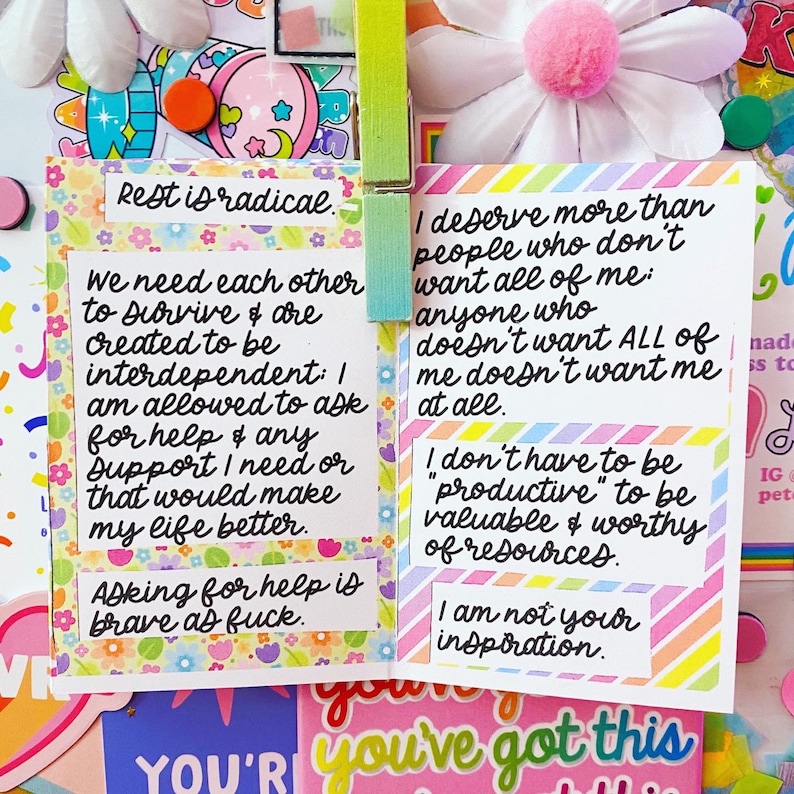 THE
Rest is radical.
We need each other
to survive & are
created to be
interdependent; I
am allowed to ask
for help & any
support I need or
that would make
my life better.
Asking for help is
brave as fuck.
I deserve more than
people who don't
want all of me;
anyone who
doesn't want ALL of
me doesn't want me
at all.
I don't have to be
"productive" to be
valuable & worthy
of resources.
I am not your
inspiration.
IG @
YOU'R
you've got this